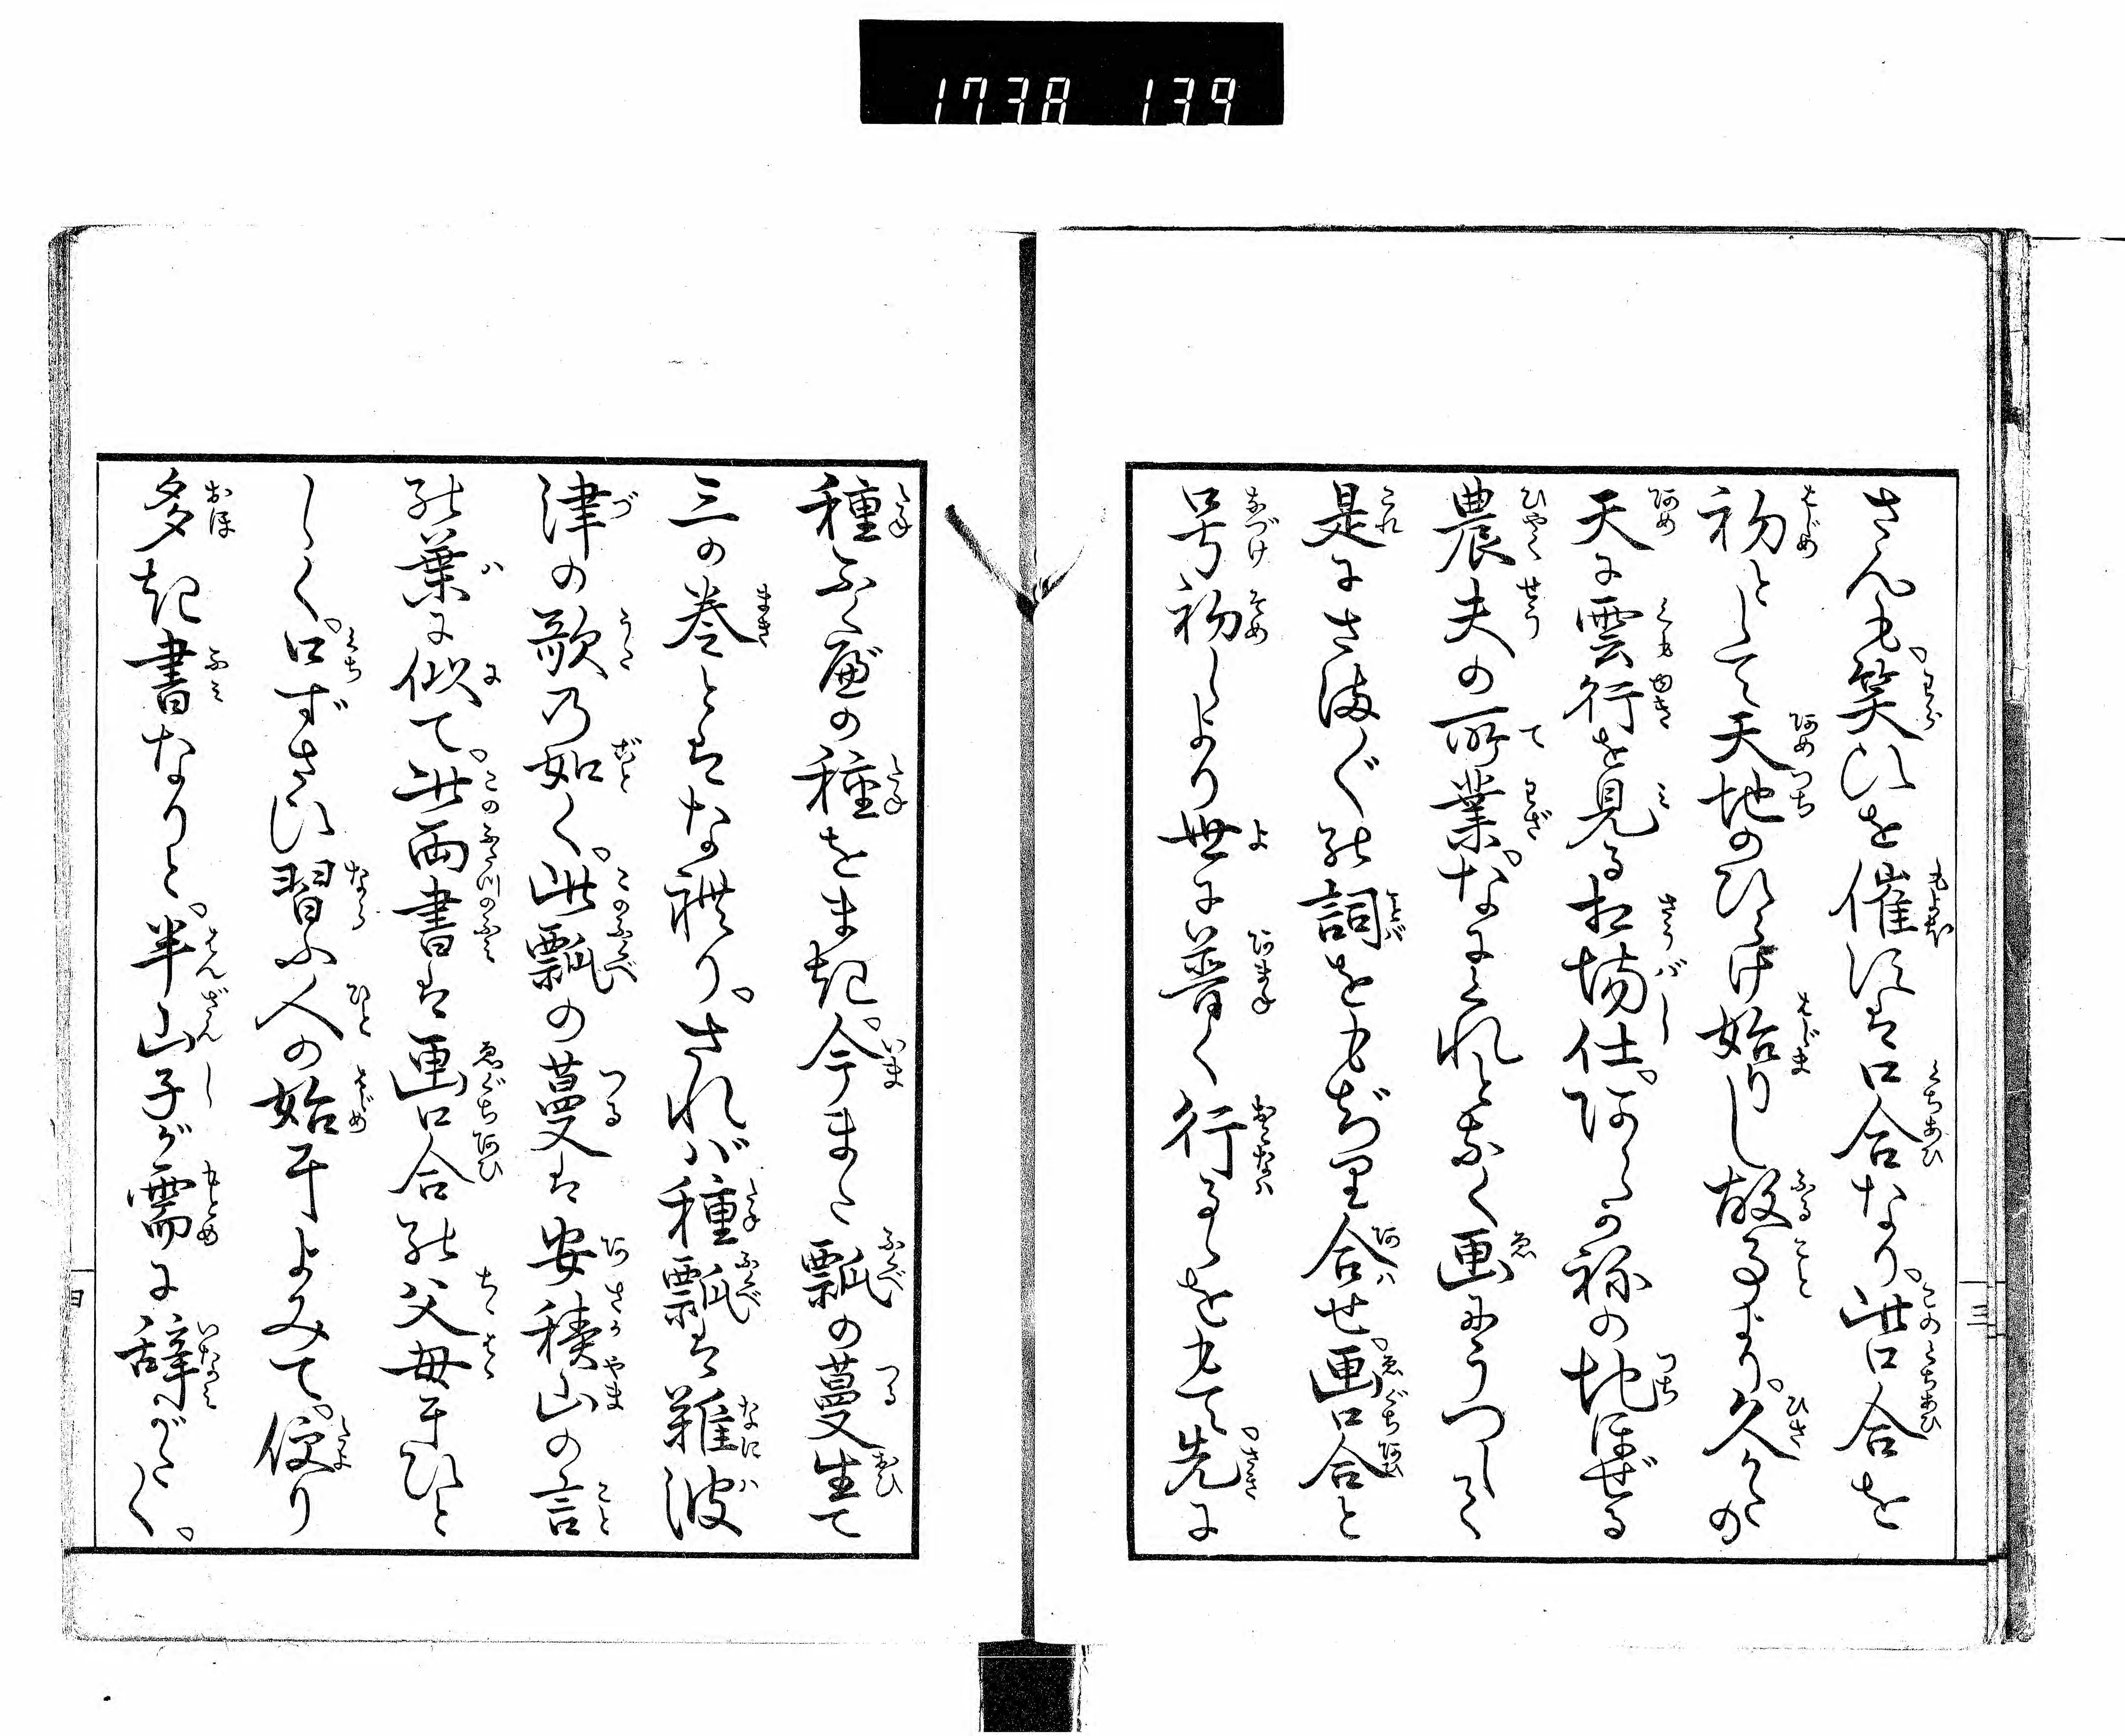 1738 139
さんも。笑ひを催すは口合なり。此口合を
初として天地のひらけ始りし故事より。久かたの
天に雲行を見る相場仕。あらかねの地ほぜる
農夫の所業。なにくれとなく画にうつして
是にさまぐの詞をもぢり合せ。画口合と
号初しより世に普く行るゝをもて。先に
種ふくべの種をまき。今また瓢の蔓生て
三の巻とはなれり。されバ種瓢は難波
津の歌乃如く。此瓢の蔓は安積山の言
の葉に似て。此両書は画口合の父母にひと
しく。口ずさひ習ふ人の始によみて。便り
多き書なりと。半山子が需に辞がたく。